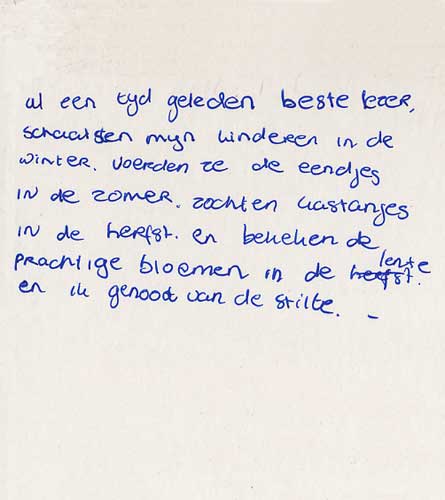 al een tyd geleden beste lezer,
schaatsen myn kinderen in de
winter. voerden ze de eendjes
in de zomer. zochten kastanjes
in de herfst. en bekeken de
prachtige bloemen in de herfst lente.
en ik genoot van de stilte. –